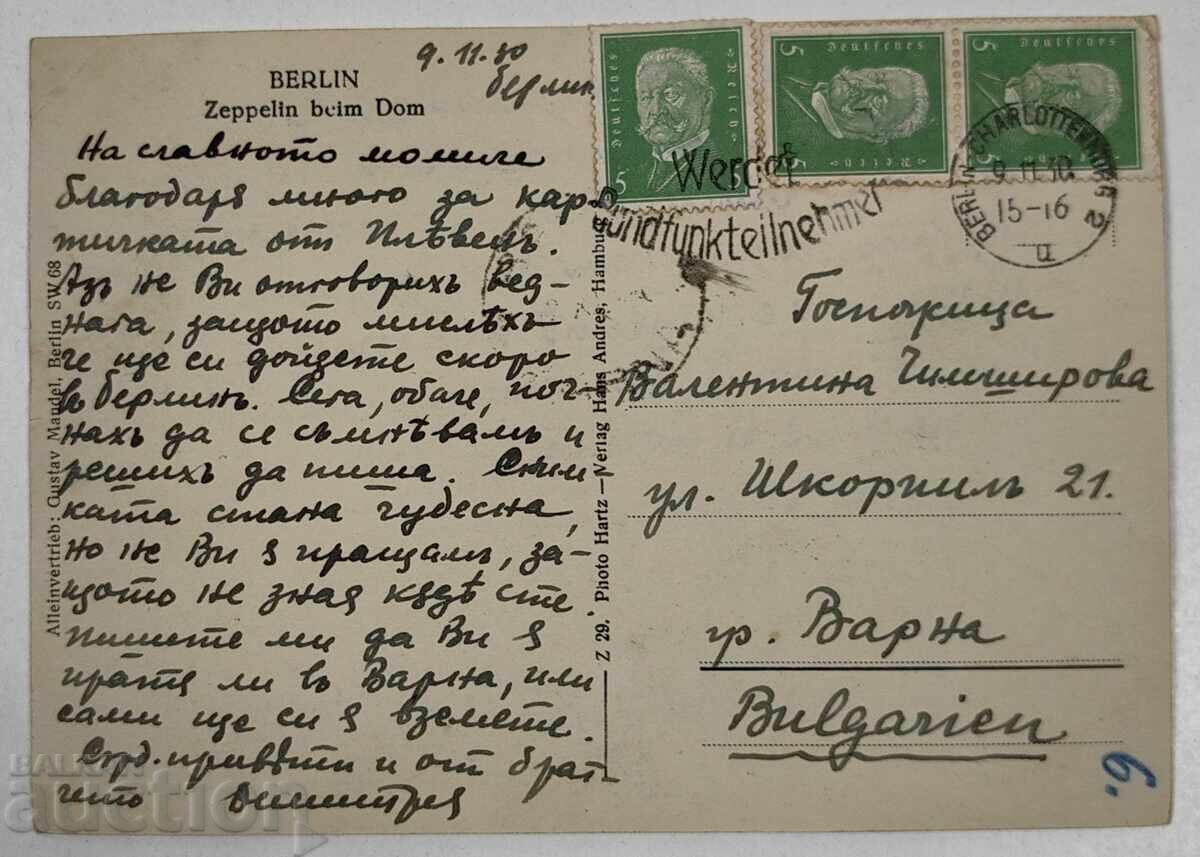 BERLIN
Zeppelin beim Dom
9.11.30
Берлин
На славното момиче
благодаря много за кар-
тичката от Плѣвенъ.
Азъ не Ви отговорихъ вед-
нага, защото мислѣхъ
че ще си дойдете скоро
въ Берлинъ. Сега, обаче, поч-
нахъ да се съмнѣвамъ и
решихъ да пиша. Сним-
ката стана чудесна,
но не Ви я пращамъ, за-
щото не зная кѫдѣ сте.
пишете ми да Ви я
пратя ли въ Варна, или
сами ще си я вземете.
Сърд. привѣти и от брат-
чето
Alleinvertrieb: Gustav Mandel, Berlin SW 68
Z 29. Photo Hartz — Verlag Hans Andres, Hamburg
Deutsches Reich 5
Deutsches Reich 5
Deutsches Reich 5
Werdet
Rundfunkteilnehmer
BERLIN-CHARLOTTENBURG 2
9.11.30.
15-16
n
Госпожица
Валентина Чимширова
ул. Шкорпилъ 21.
гр. Варна
Bulgarien
6.
BALKAN
auction